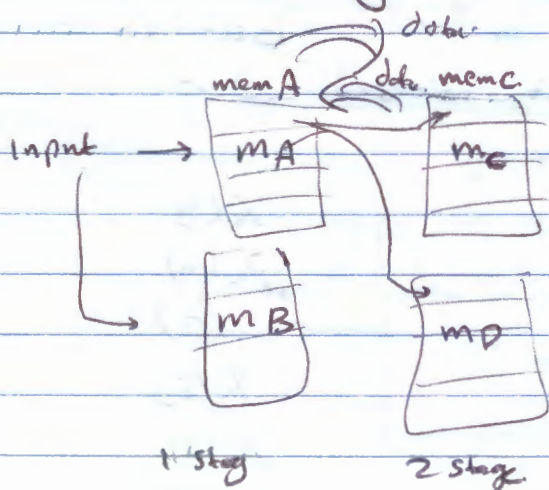 data.
mem A data. memC.
Input mA mC
mB mD
1 stag 2 stage.